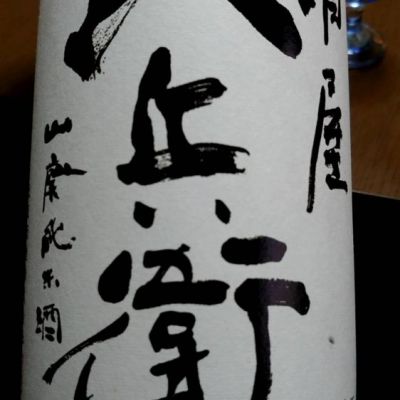 酒屋
八兵衛
山廃純米酒